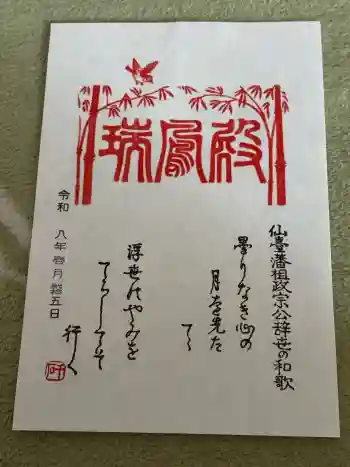 瑞鳳殿
仙臺藩祖政宗公辞世の和歌
曇りなき心の
月を先た
てゝ
浮世のやみを
てらしてそ
行く
令和 八年 壱月 五日